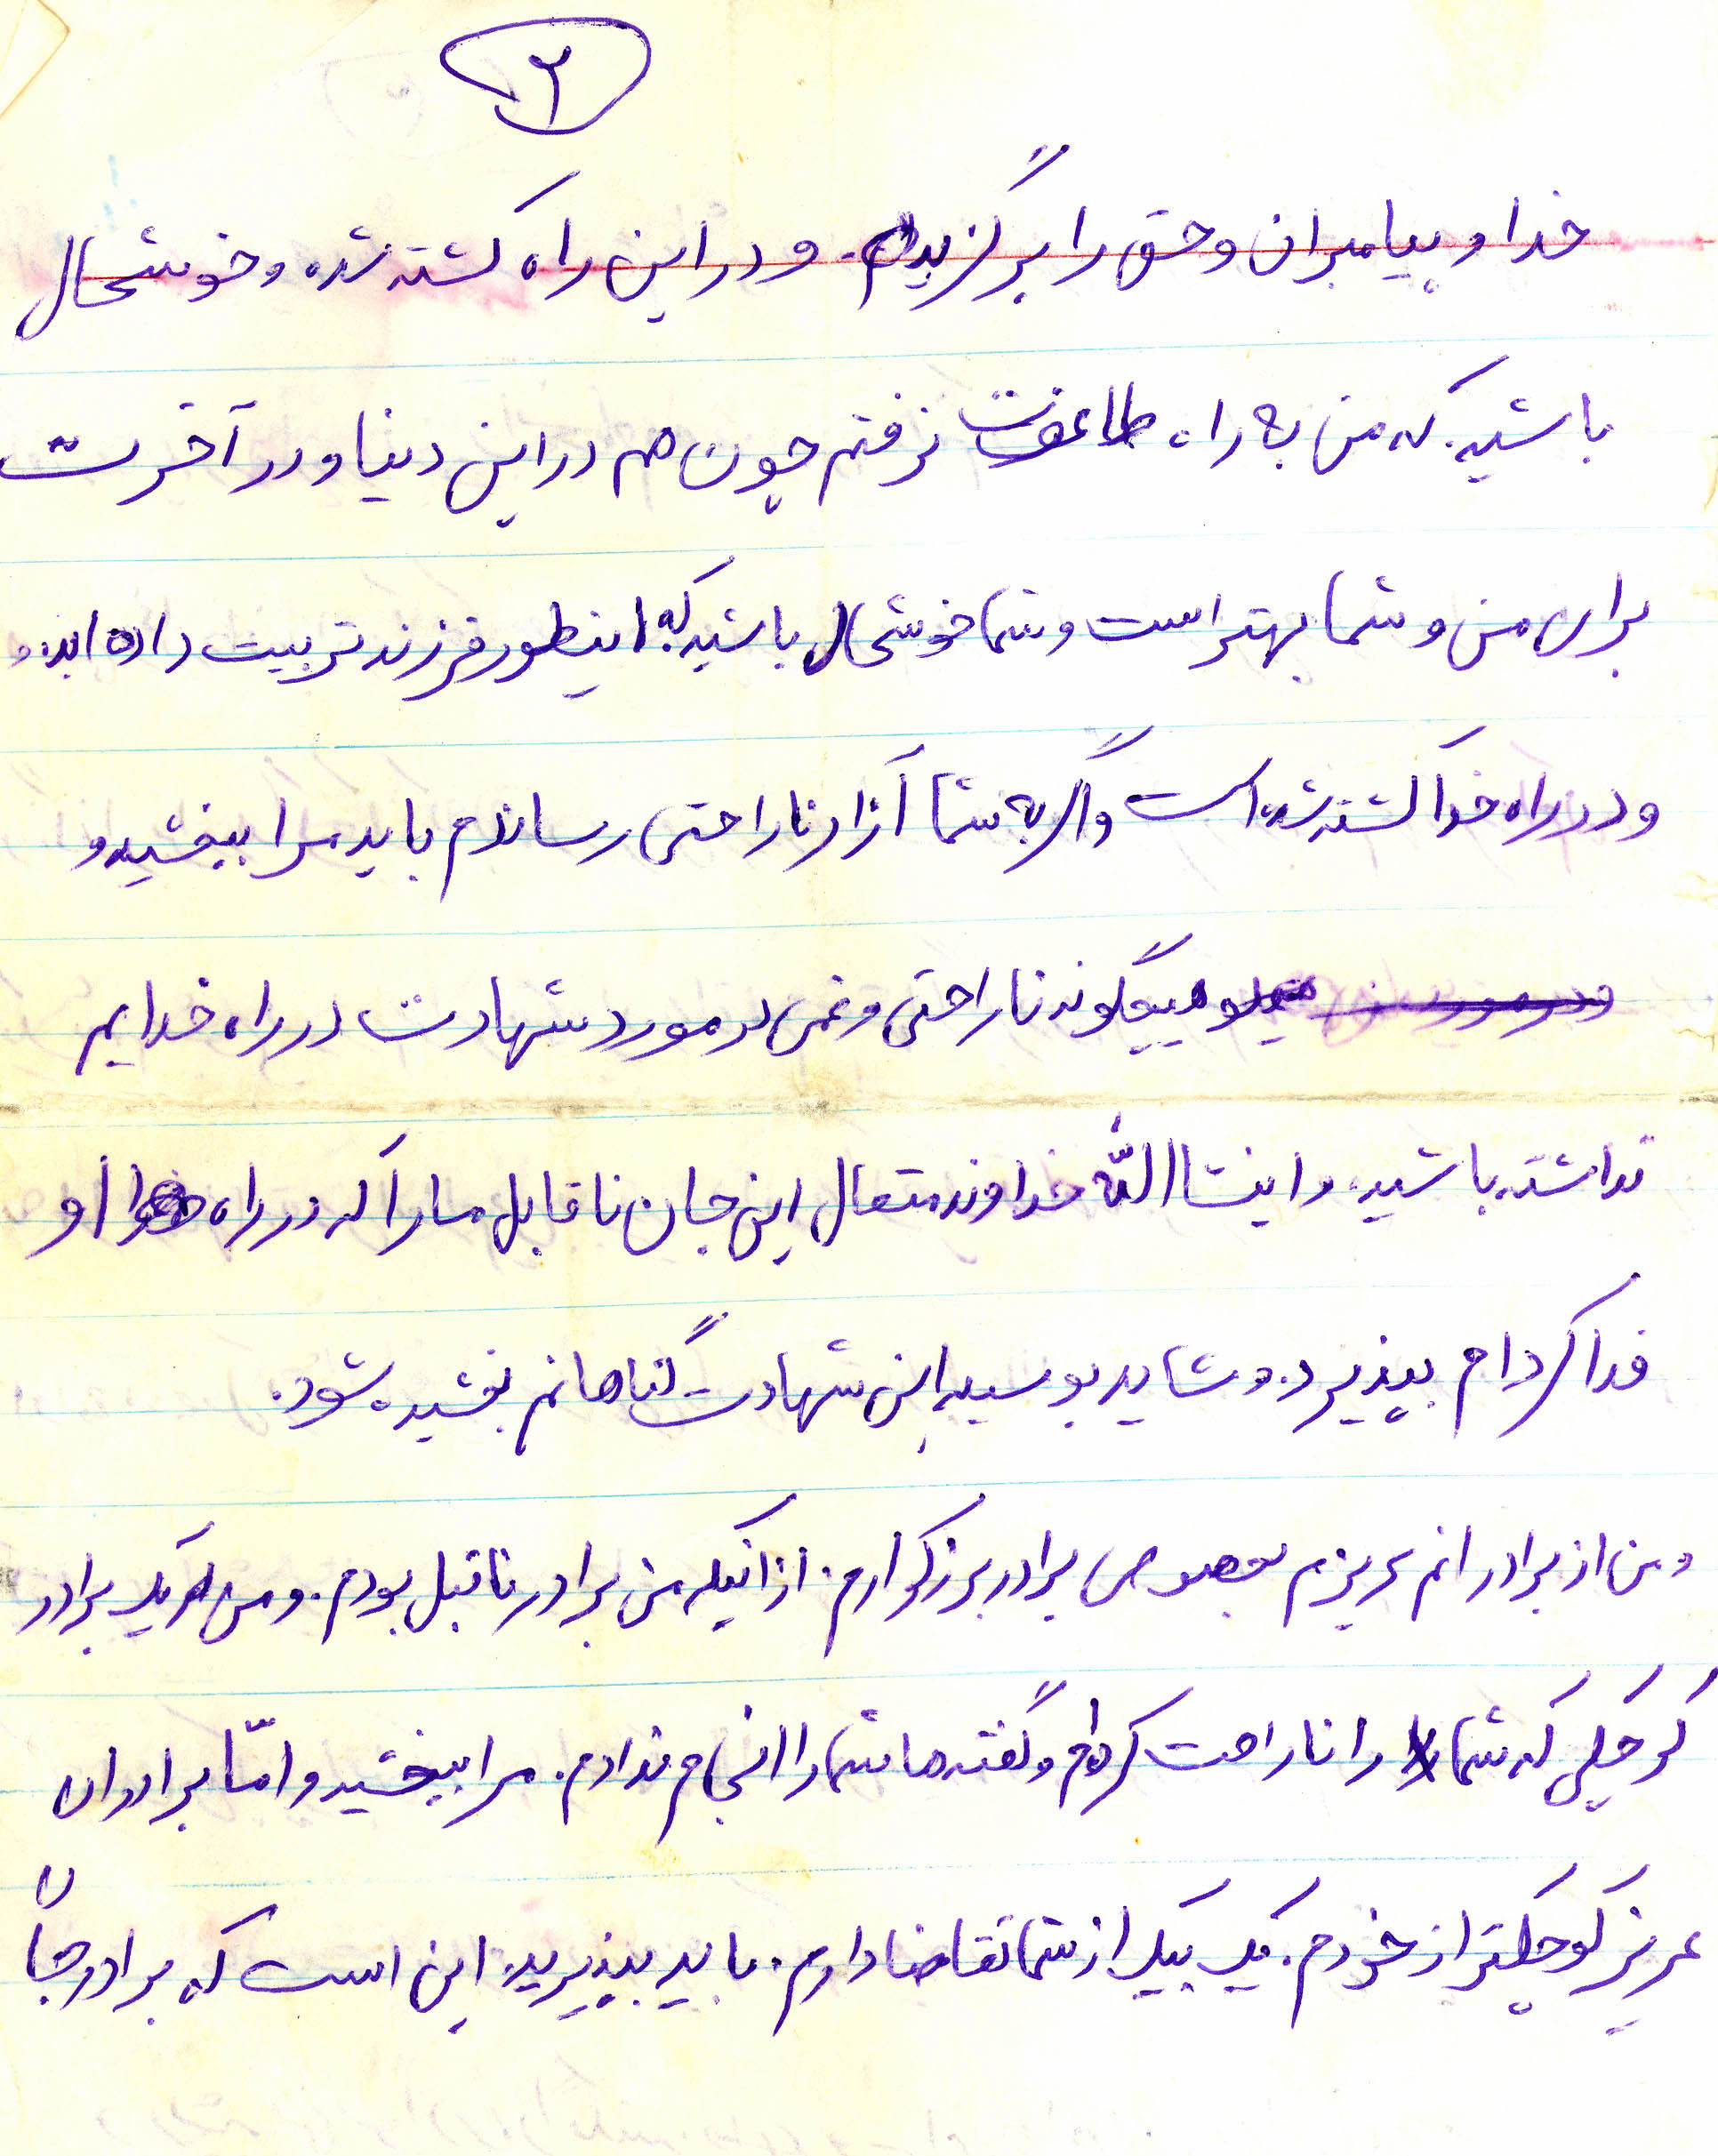 ۲
خدا و پیامبران وحق را برگزیدم. و در این راه کشته شده و خوشحال
باشید. که من به راه طاغوت نرفتم چون هم در این دنیا و در آخرت
برای من و شما بهتر است و شما خوشحال باشید که اینطور فرزند تربیت داده اید. و
و در راه خدا کشته شده است و اگر به شما آزار ناراحتی رساندم باید مرا ببخشید و
هیچگونه ناراحتی و غمی در مورد شهادت در راه خدایم
نداشته باشید. و اینشاالله خداوند متعال این جان ناقابل ما را که در راه او
فدا کردام بپذیرد. و شاید بوسیله این شهادت گناهانم بخشیده شود.
و من از برادرانم عزیزم بخصوص برادر بزرگوارم. از اینکه من برادر ناقبل بودم. و من یک برادر
کوچکی که شما را ناراحت کردام و گفته ها شما را انجام ندادم. مرا ببخشید و امّا برادران
عزیز کوچکتر از خودم. یک بیک از شما تقاضا دارم. باید بپذیرید. این است که برادر جاً